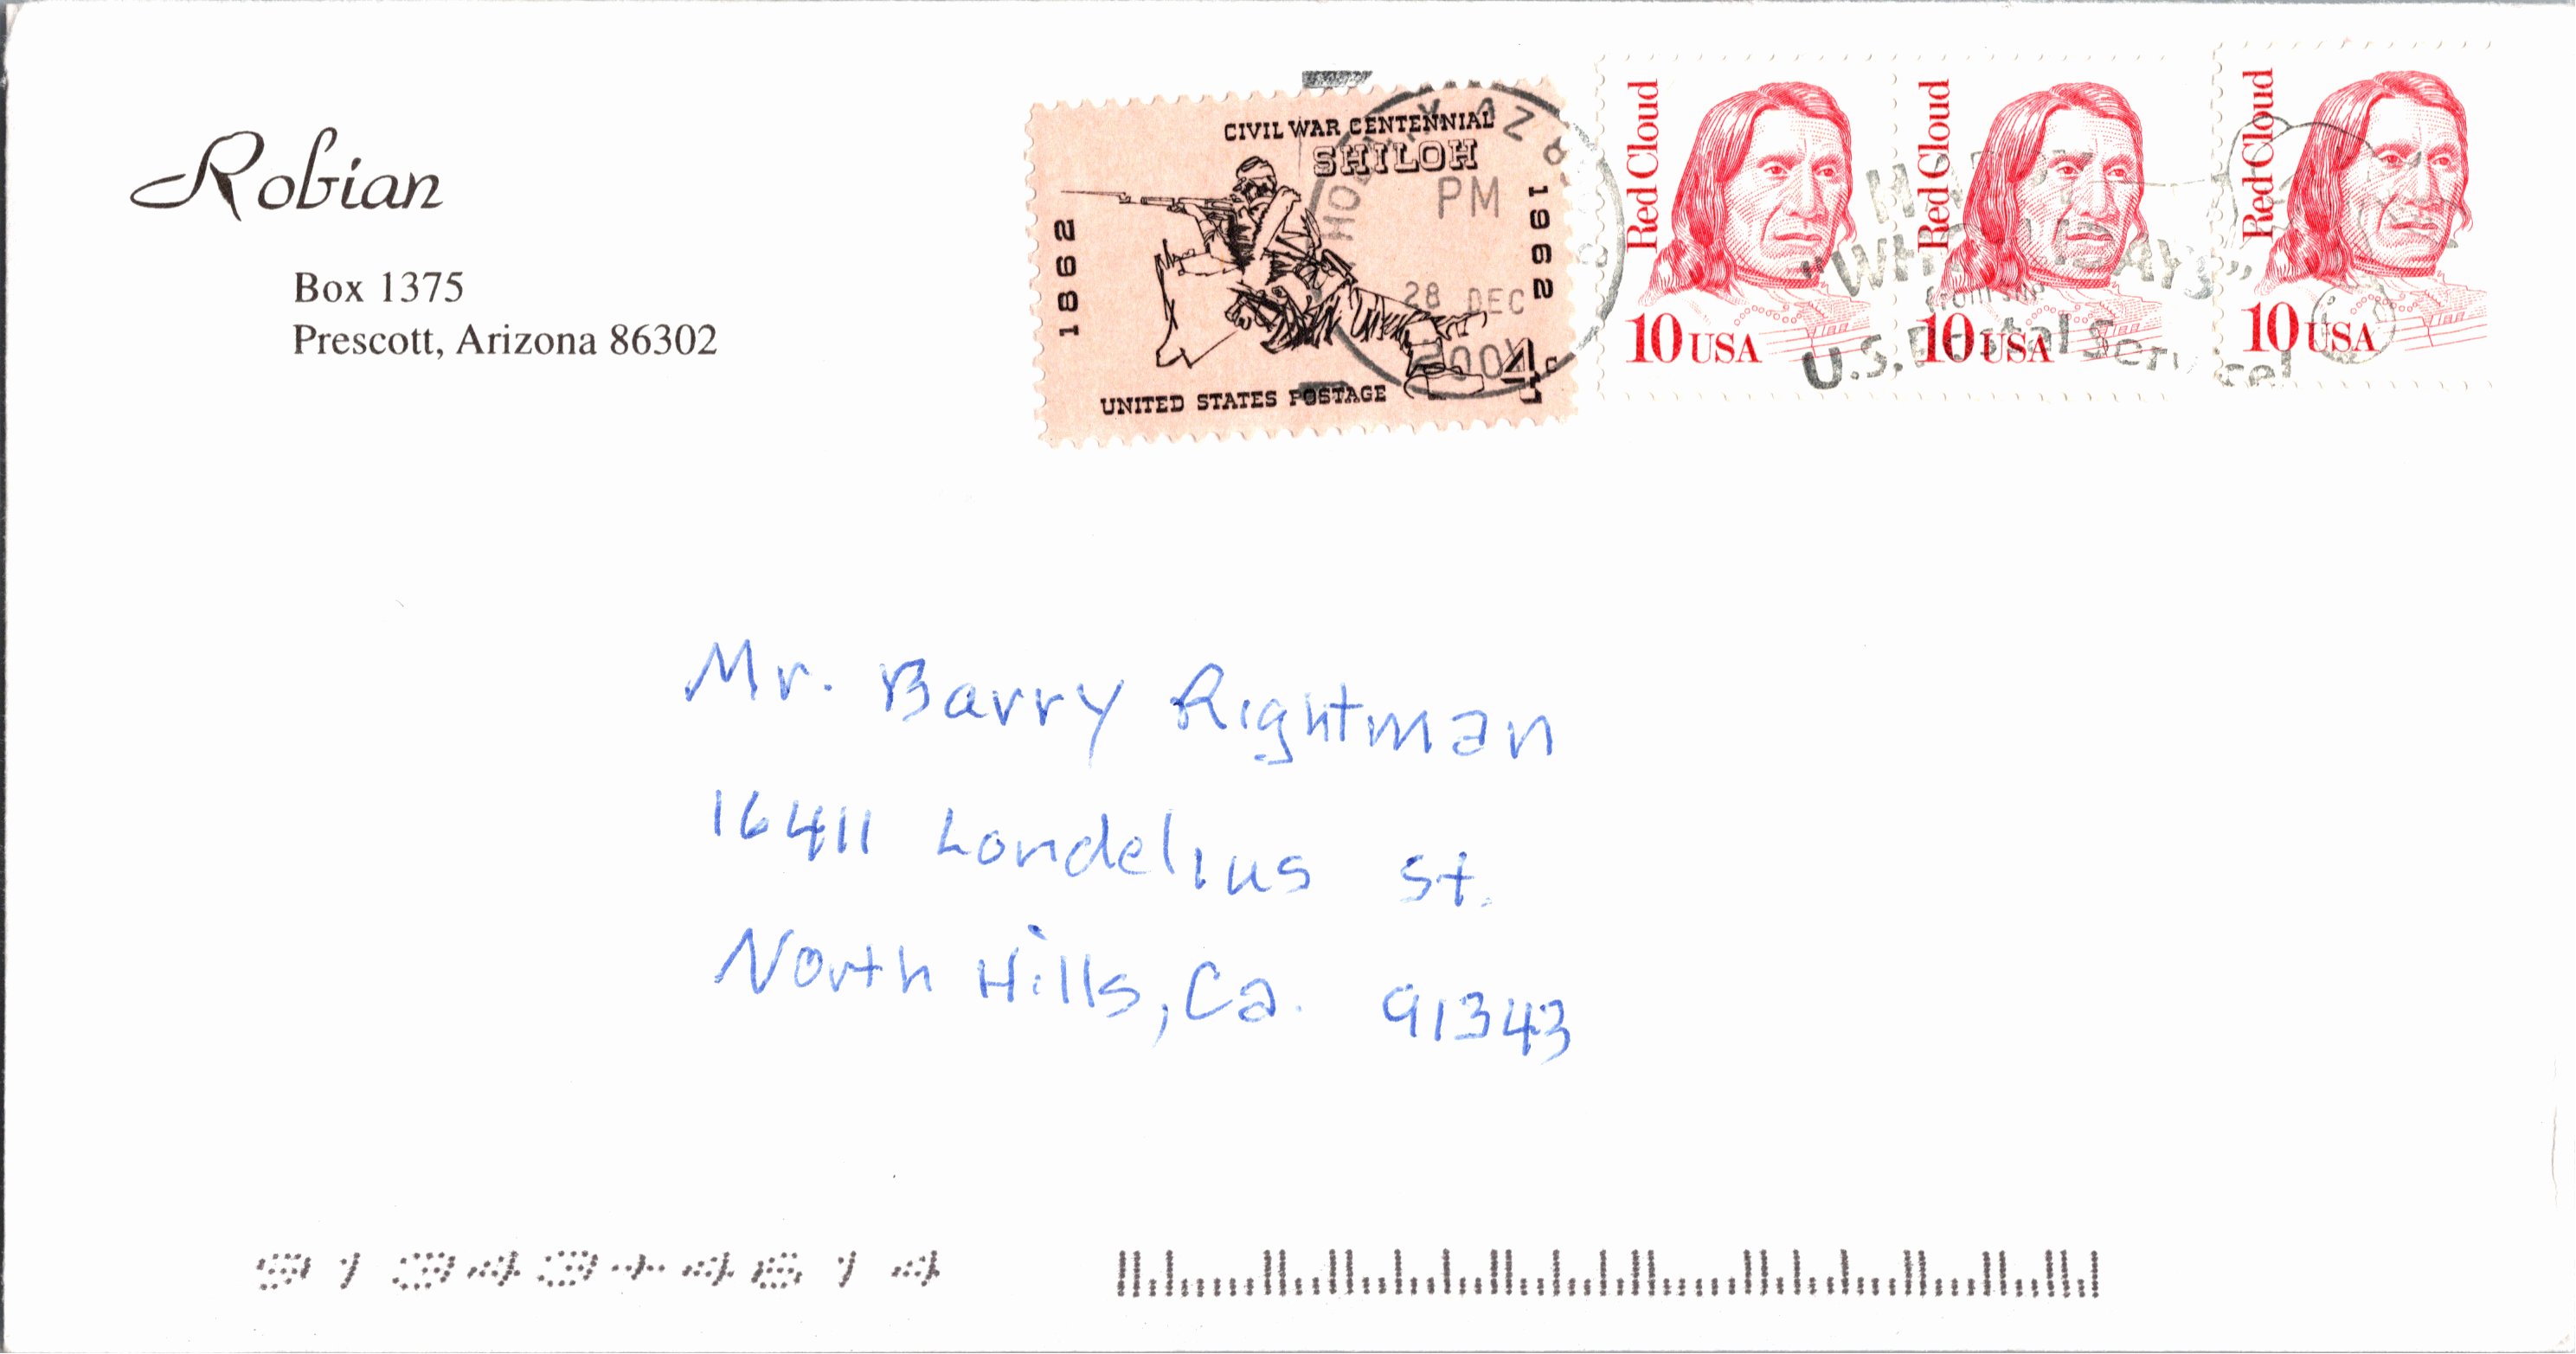 Robian
Box 1375
Prescott, Arizona 86302
CIVIL WAR CENTENNIAL
SHILOH
1862
1962
UNITED STATES POSTAGE
4c
AZ
PM
28 DEC
Red Cloud
10 USA
Red Cloud
10 USA
Red Cloud
10 USA
from the
U.S. Postal Service!
Mr. Barry Rightman
16411 Londelius St.
North Hills, Ca. 91343
91343+4614